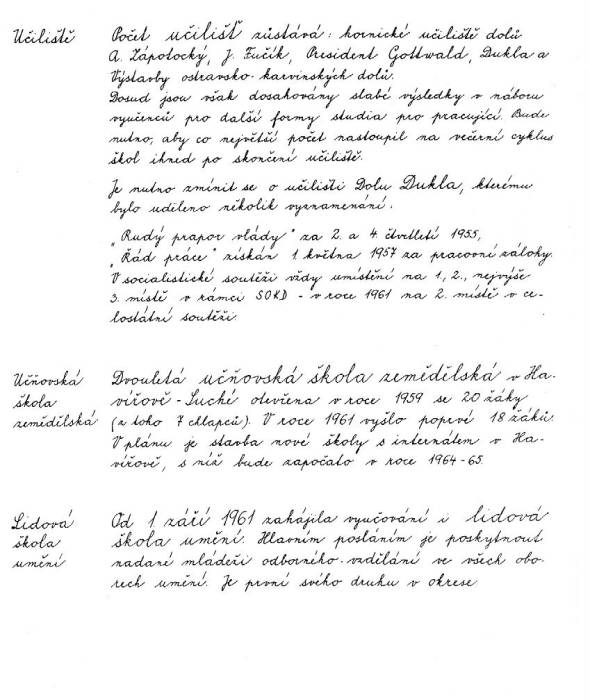 Učiliště Počet učilišť zůstává: hornické učiliště dolů
A. Zápotocký, J. Fučík, President Gottwald, Dukla a
Výstavby ostravsko-karvinských dolů.
Dosud jsou však dosahovány slabé výsledky v náboru
vyučenců pro další formy studia pro pracující. Bude
nutno, aby co největší počet nastoupil na večerní cyklus
škol ihned po skončení učiliště.
Je nutno zmínit se o učilišti Dolu Dukla, kterému
bylo uděleno několik vyznamenání:
„Rudý prapor vlády" za 2. a 4. čtvrtletí 1955,
„Řád práce" získán 1. května 1957 za pracovní zálohy.
V socialistické soutěži vždy umístění na 1., 2., nejvýše
3. místě v rámci SOKD - v roce 1961 na 2. místě v ce-
lostátní soutěži.
Učňovská Dvouletá učňovská škola zemědělská v Ha-
škola vířově-Suché otevřena v roce 1959 se 20 žáky
zemědělská (z toho 7 chlapců). V roce 1961 vyšlo poprvé 18 žáků.
V plánu je stavba nové školy s internátem v Ha-
vířově, s níž bude započato v roce 1964-65.
Lidová Od 1. září 1961 zahájila vyučování i lidová
škola škola umění. Hlavním posláním je poskytnout
umění nadané mládeži odborného vzdělání ve všech obo-
rech umění. Je první svého druhu v okrese.